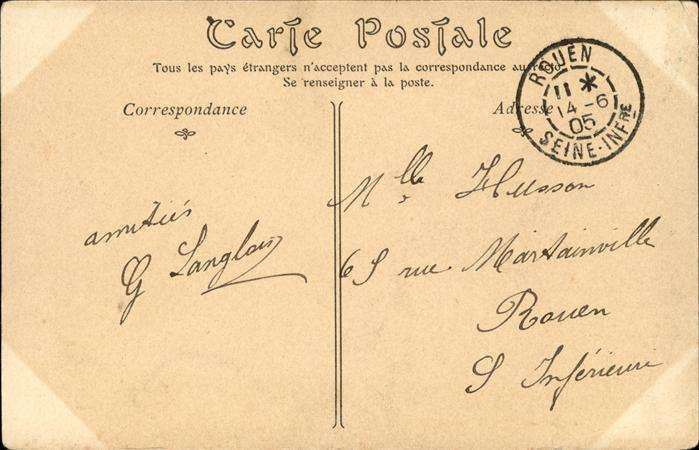 Carte Postale
Tous les pays étrangers n'acceptent pas la correspondance au recto
Se renseigner à la poste.
Correspondance
Adresse
ROUEN
11 *
14-6
05
SEINE-INFRE
amitiés
G Langlois
Mlle Husson
65 rue Martainville
Rouen
S Inférieure